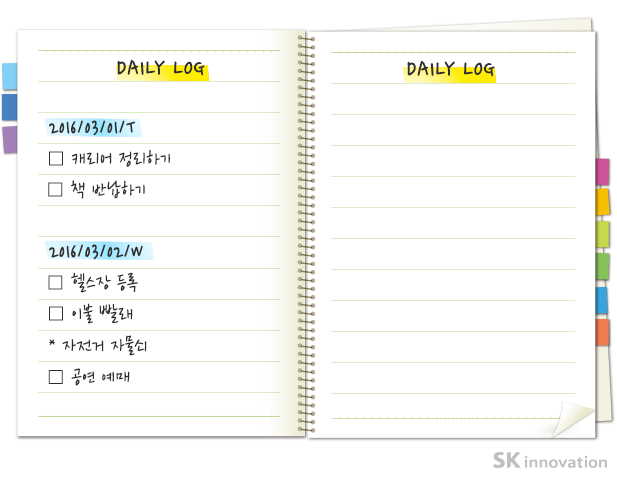 DAILY LOG
2016/03/01/T
캐리어 정리하기
책 반납하기
2016/03/02/W
헬스장 등록
이불 빨래
* 자전거 자물쇠
공연 예매
DAILY LOG
SK innovation